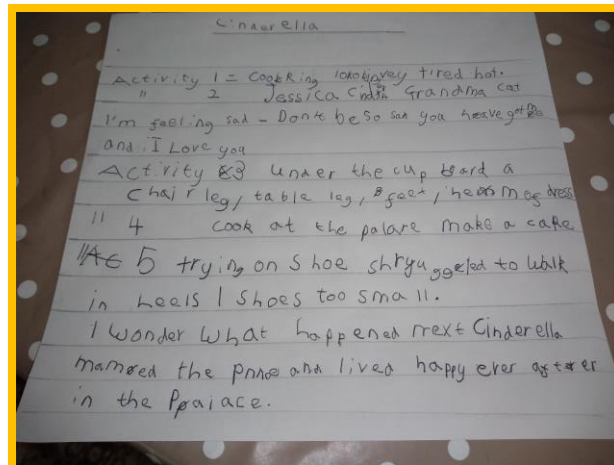 Cinderella
Activity 1 = Cooking looking very tired hot.
" 2 Jessica Grandma cat
I'm feeling sad - Dont be so sad you heave got me
and I Love you
Activity 3 under the cup board a
Chair leg, table leg, feet, hem of dress
" 4 Cook at the palare make a cake
" 5 trying on Shoe to walk
in heels / shoes too small.
I wonder what happened next Cinderella
the prince and lived happy ever after
in the Ppalace.